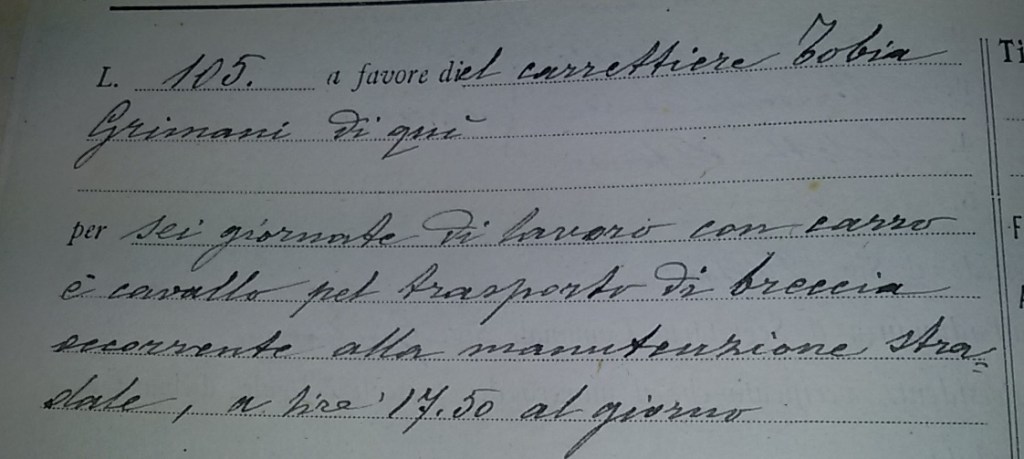 L. 105. a favore diel carrettiere Tobia Ti
Grimani di quì
per sei giornate di lavoro con carro F
e cavallo pel trasporto di breccia
occorrente alla manutenzione stra=
dale, a lire 17.50 al giorno